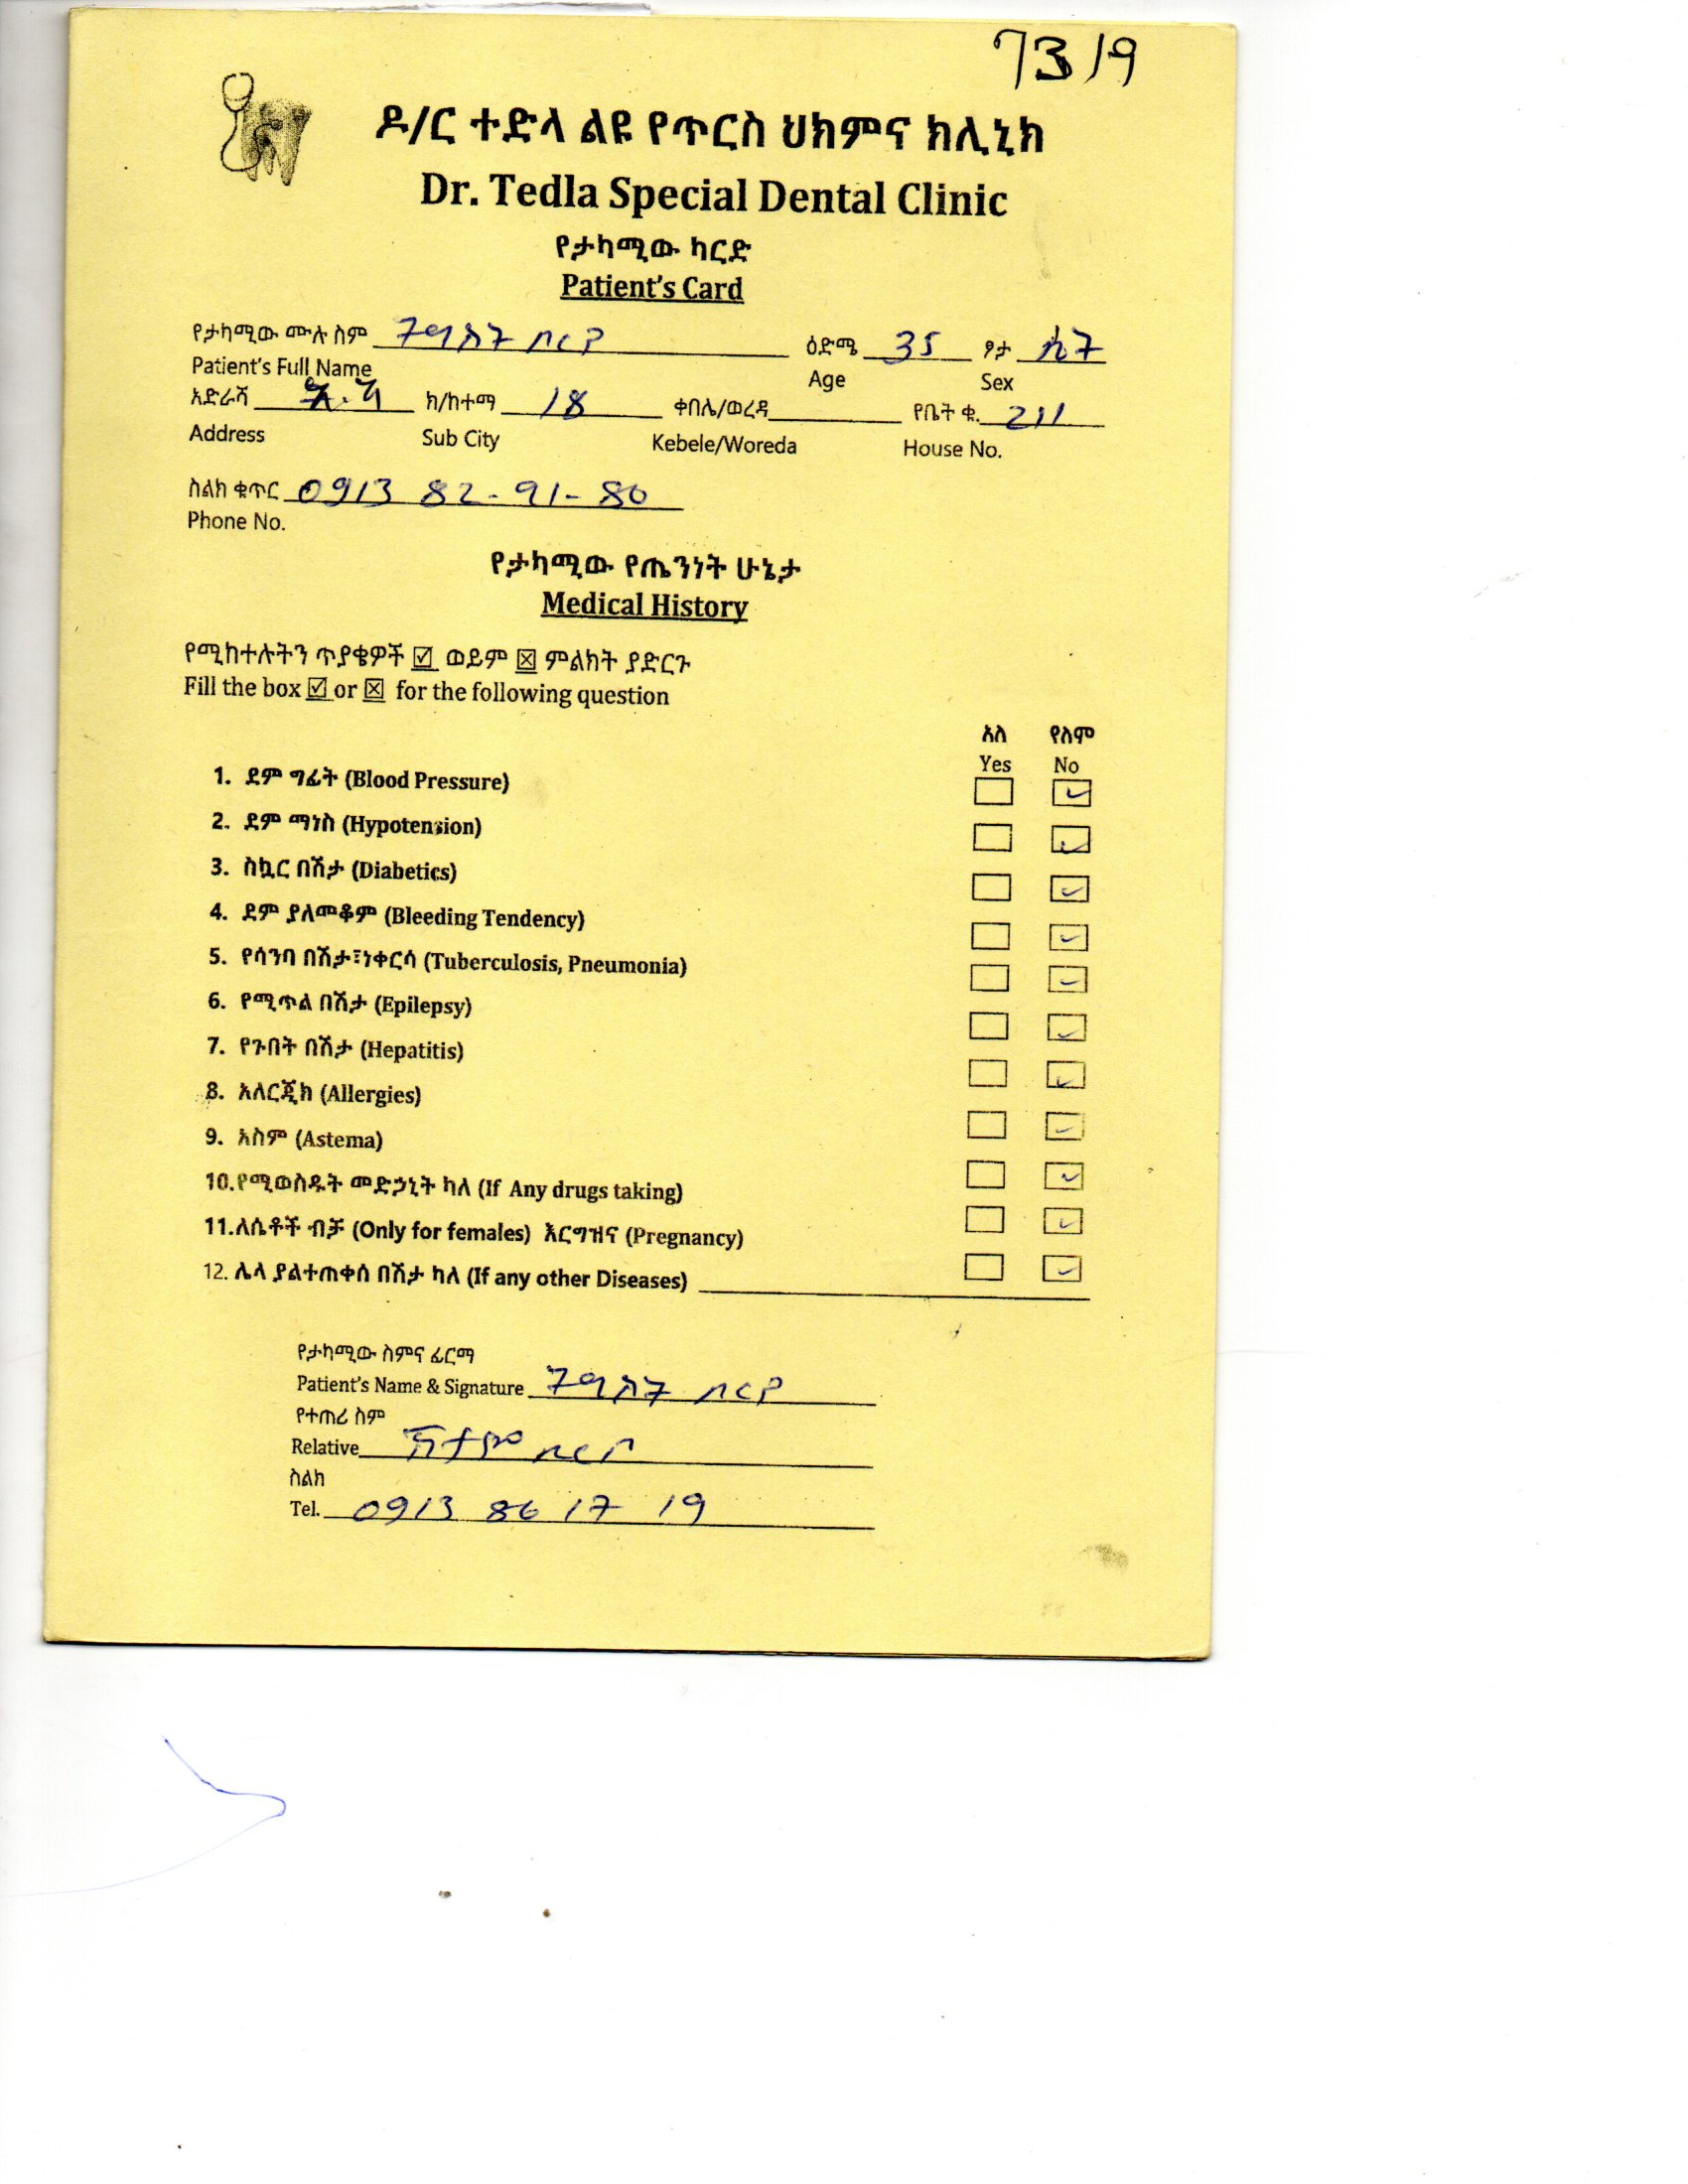 7319
ዶ/ር ተድላ ልዩ የጥርስ ህክምና ክሊኒክ
Dr. Tedla Special Dental Clinic
የታካሚው ካርድ
Patient's Card
የታካሚው ሙሉ ስም ትዕግስት በርዎ ዕድሜ 35 ፆታ ሴት
Patient's Full Name Age Sex
አድራሻ ክ/ከተማ 18 ቀበሌ/ወረዳ የቤት ቁ. 211
Address Sub City Kebele/Woreda House No.
ስልክ ቁጥር 0913 82-91-80
Phone No.
የታካሚው የጤንነት ሁኔታ
Medical History
የሚከተሉትን ጥያቄዎች ☑ ወይም ☒ ምልክት ያድርጉ
Fill the box ☑ or ☒ for the following question
አለ የለም
Yes No
1. ደም ግፊት (Blood Pressure)
2. ደም ማነስ (Hypotension)
3. ስኳር በሽታ (Diabetics)
4. ደም ያለመቆም (Bleeding Tendency)
5. የሳንባ በሽታ፣ነቀርሳ (Tuberculosis, Pneumonia)
6. የሚጥል በሽታ (Epilepsy)
7. የጉበት በሽታ (Hepatitis)
8. አለርጂክ (Allergies)
9. አስም (Astema)
10.የሚወስዱት መድኃኒት ካለ (If Any drugs taking)
11.ለሴቶች ብቻ (Only for females) እርግዝና (Pregnancy)
12. ሌላ ያልተጠቀሰ በሽታ ካለ (If any other Diseases)
የታካሚው ስምና ፊርማ
Patient's Name & Signature
የተጠሪ ስም
Relative
ስልክ
Tel. 0913 86 17 19